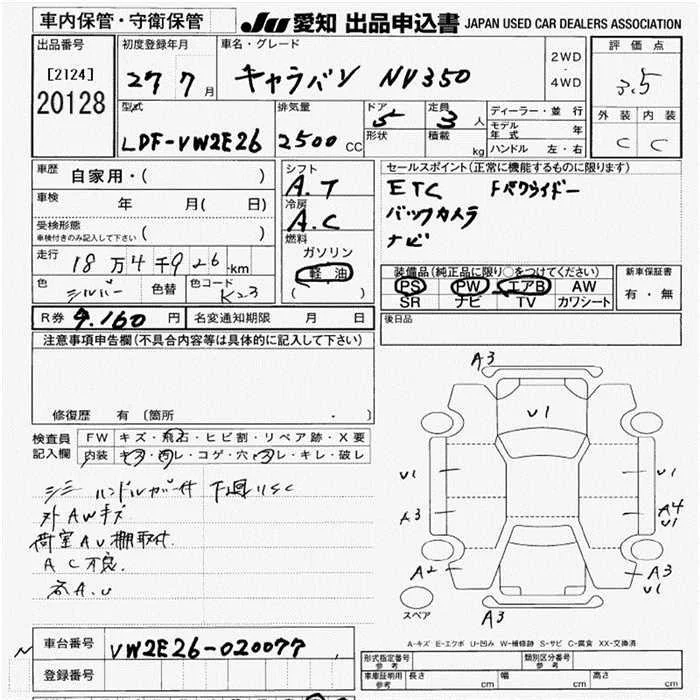 車内保管・守衛保管
JU 愛知 出品申込書 JAPAN USED CAR DEALERS ASSOCIATION
出品番号
[2124]
20128
初度登録年月
27 7 月
車名・グレード
キャラバン NV350
2WD
・
4WD
評価点
3.5
外装 内装
C C
型式
LDF-VW2E26
排気量
2500 CC
ドア
5
形状
定員
3 人
積載
kg
ディーラー・並行
モデル年式 年
ハンドル 左・右
車歴
自家用・( )
車検
年 月( 日)
受検形態
車検付きのみ記入して下さい ( )
走行
18 万 4 千 9 26 km
色
シルバー
色替
色コード
K23
シフト
A.T
冷房
A.C
燃料
ガソリン
軽油
( )
セールスポイント(正常に機能するものに限ります)
ETC
バックカメラ
ナビ
装備品(純正品に限り○をつけてください)
PS PW エアB AW
SR ナビ TV カワシート
新車保証書
有・無
R券 9.160 円 名変通知期限 月 日
後日品
注意事項申告欄(不具合内容等は具体的に記入して下さい)
修復歴 有 〔箇所 ・ 〕
検査員
記入欄
FW キズ・飛石・ヒビ割・リペア跡・X要
内装 キズ・汚レ・コゲ・穴・スレ・キレ・破レ
シミ ハンドルカバー付 下廻りSC
外AWキズ
荷室AU棚取付
AC不良
A3
U1
U1
U1
A3
A4
U1
A2
A3
U1
A3
スペア
A-キズ E-エクボ U-凹み W-補修跡 S-サビ C-腐食 XX-交換済
N
車台番号 VW2E26-020077
登録番号
形式指定番号
参考
類別区分番号
参考
車庫証明用
参考
長さ cm 幅 cm 高さ cm